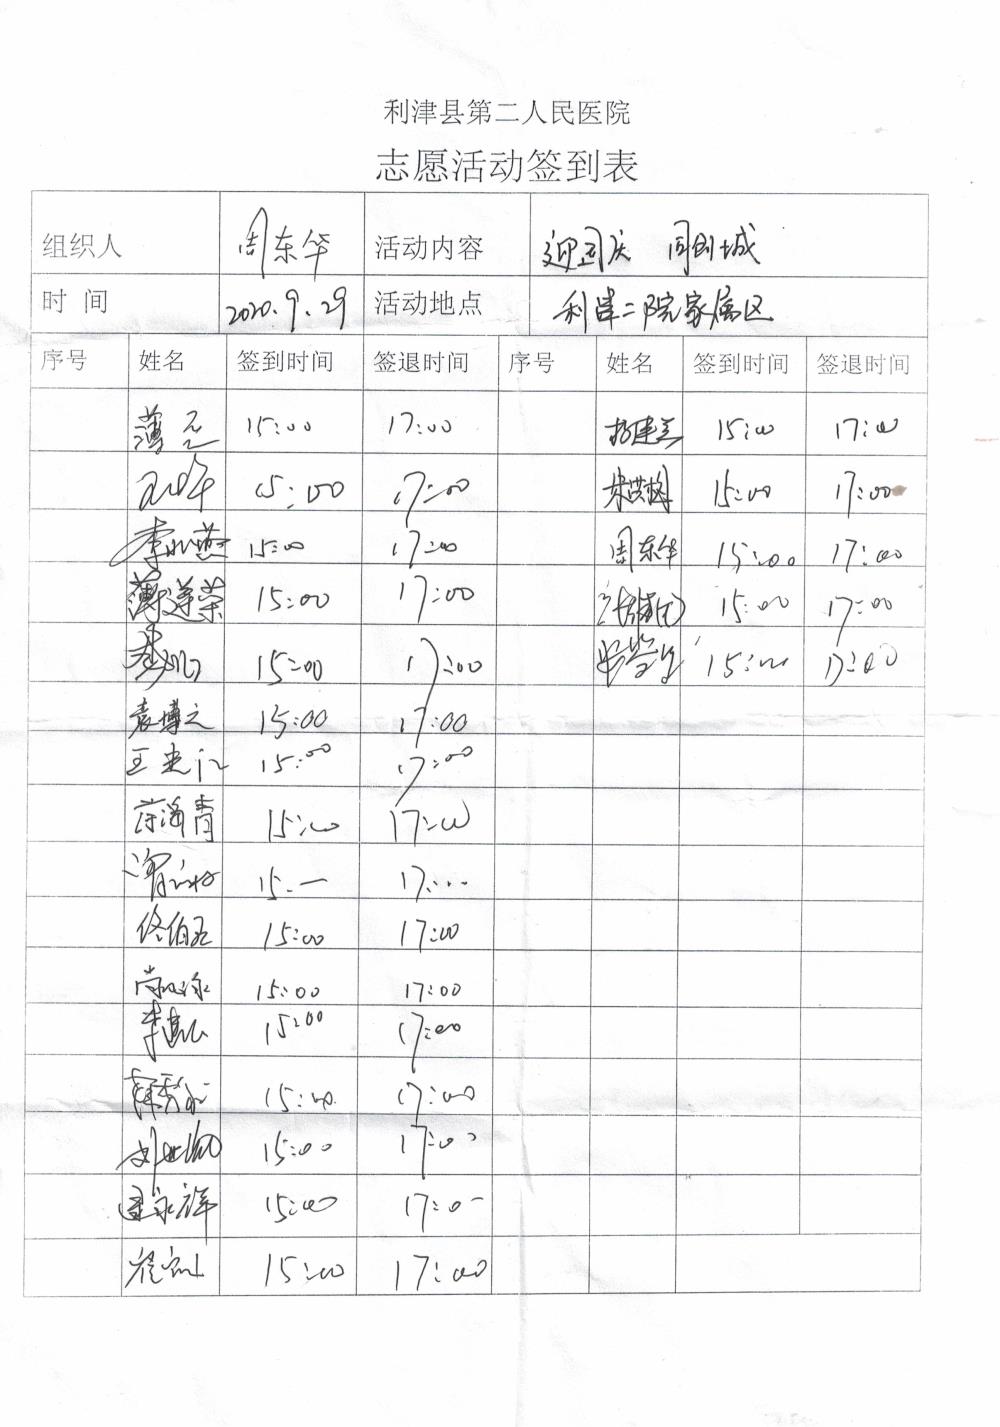 利津县第二人民医院
志愿活动签到表
组织人 周东华 活动内容 迎国庆 同创城
时 间 2020.9.29 活动地点 利津二院家属区
序号 姓名 签到时间 签退时间 序号 姓名 签到时间 签退时间
薄 15:00 17:00 15:00 17:00
15:00 17:00 15:00 17:00
李 燕 15:00 17:00 周东华 15:00 17:00
薄莲荣 15:00 17:00 15:00 17:00
15:00 17:00 15:00 17:00
袁博文 15:00 17:00
王 15:00 17:00
青 15:00 17:00
15:00 17:00
佟伯 15:00 17:00
尚 15:00 17:00
李建 15:00 17:00
薛秀 15:00 17:00
刘 15:00 17:00
永祥 15:00 17:00
15:00 17:00